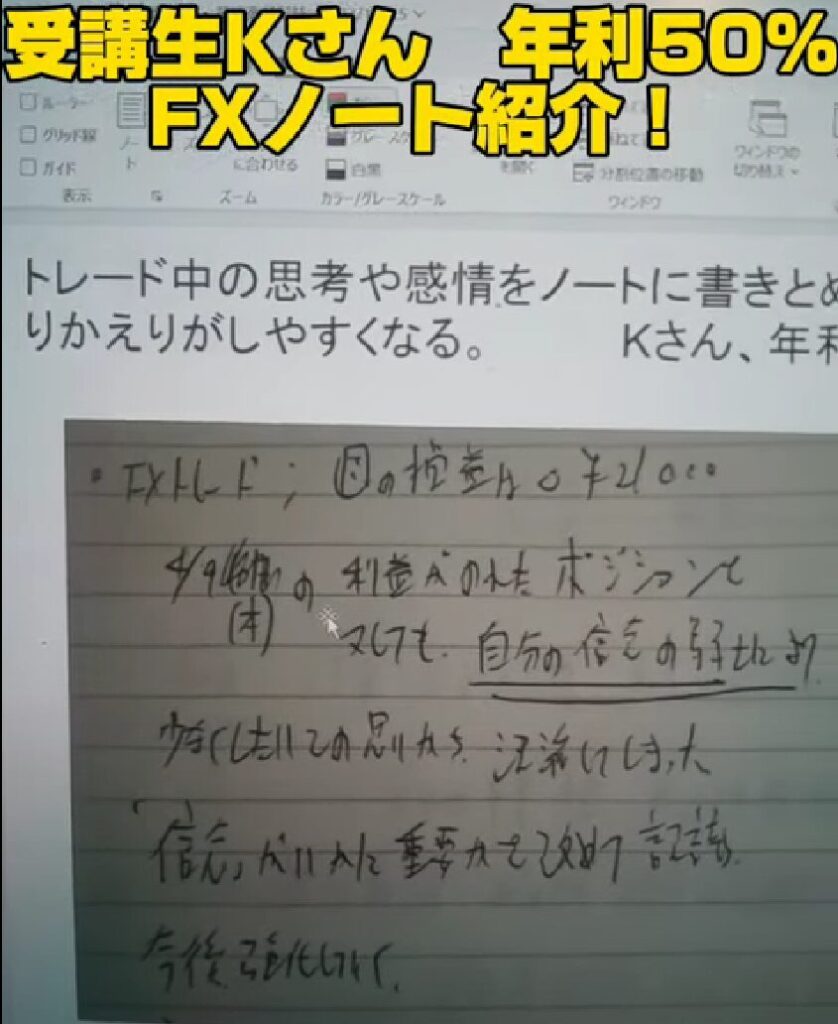 受講生Kさん 年利50%
FXノート紹介！
ルーラー
グリッド線
ガイド
表示
ノート
ズーム
に合わせる
ズーム
グレースケ
白黒
カラー/グレースケール
を開く
重ねて
分割位置の移動
ウィンドウ
ウィンドウの
切り替え
トレード中の思考や感情をノートに書きとめ
りかえりがしやすくなる。 Kさん、年利
・FXトレード; 週の損益は
4/9 の 利益がのれたポジションも
又しても、自分の信念の弱さにより、
少なくしたいとの思いから、決済してしまった
「信念」がいかに重要かを改めて認識。
今後強化していく。